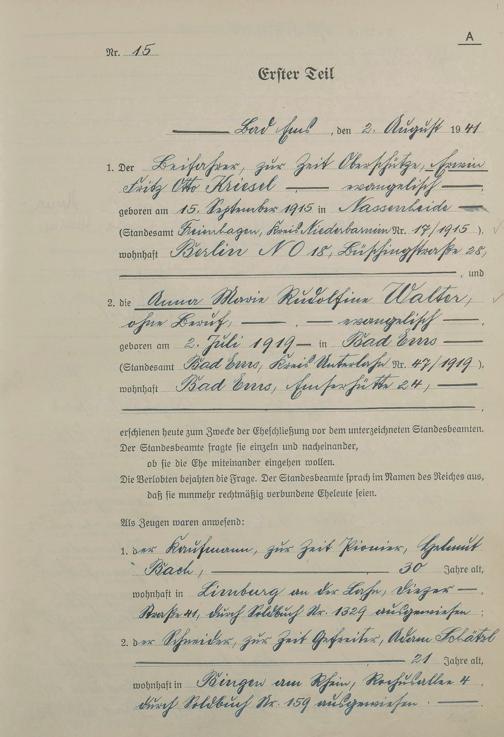 A
Nr. 15
Erster Teil
Bad Ems, den 2. August 1941
1. Der Beifahrer, zur Zeit Oberschütze, Erwin
Fritz Otto Kriesel — evangelisch —
geboren am 15. September 1915 in Nassenheide
(Standesamt Freienhagen, Kreis Niederbarnim Nr. 17/1915).
wohnhaft Berlin NO 18, Büschingstraße 28,
, und
2. die Anna Marie Rudolfine Walter,
ohne Beruf, — evangelisch —
geboren am 2. Juli 1919 — in Bad Ems —
(Standesamt Bad Ems, Kreis Unterlahn Nr. 47/1919).
wohnhaft Bad Ems, Emserhütte 24, —
erschienen heute zum Zwecke der Eheschließung vor dem unterzeichneten Standesbeamten.
Der Standesbeamte fragte sie einzeln und nacheinander,
ob sie die Ehe miteinander eingehen wollen.
Die Verlobten bejahten die Frage. Der Standesbeamte sprach im Namen des Reiches aus,
daß sie nunmehr rechtmäßig verbundene Eheleute seien.
Als Zeugen waren anwesend:
1. der Kaufmann, zur Zeit Pionier, Helmut
Bach, — 30 Jahre alt,
wohnhaft in Limburg an der Lahn, Diezer —
Straße 41, durch Soldbuch Nr. 1329 ausgewiesen;
2. der Schneider, zur Zeit Gefreiter, Adam
21 Jahre alt,
wohnhaft in Bingen am Rhein, Rochusallee 4
durch Soldbuch Nr. 159 ausgewiesen. —